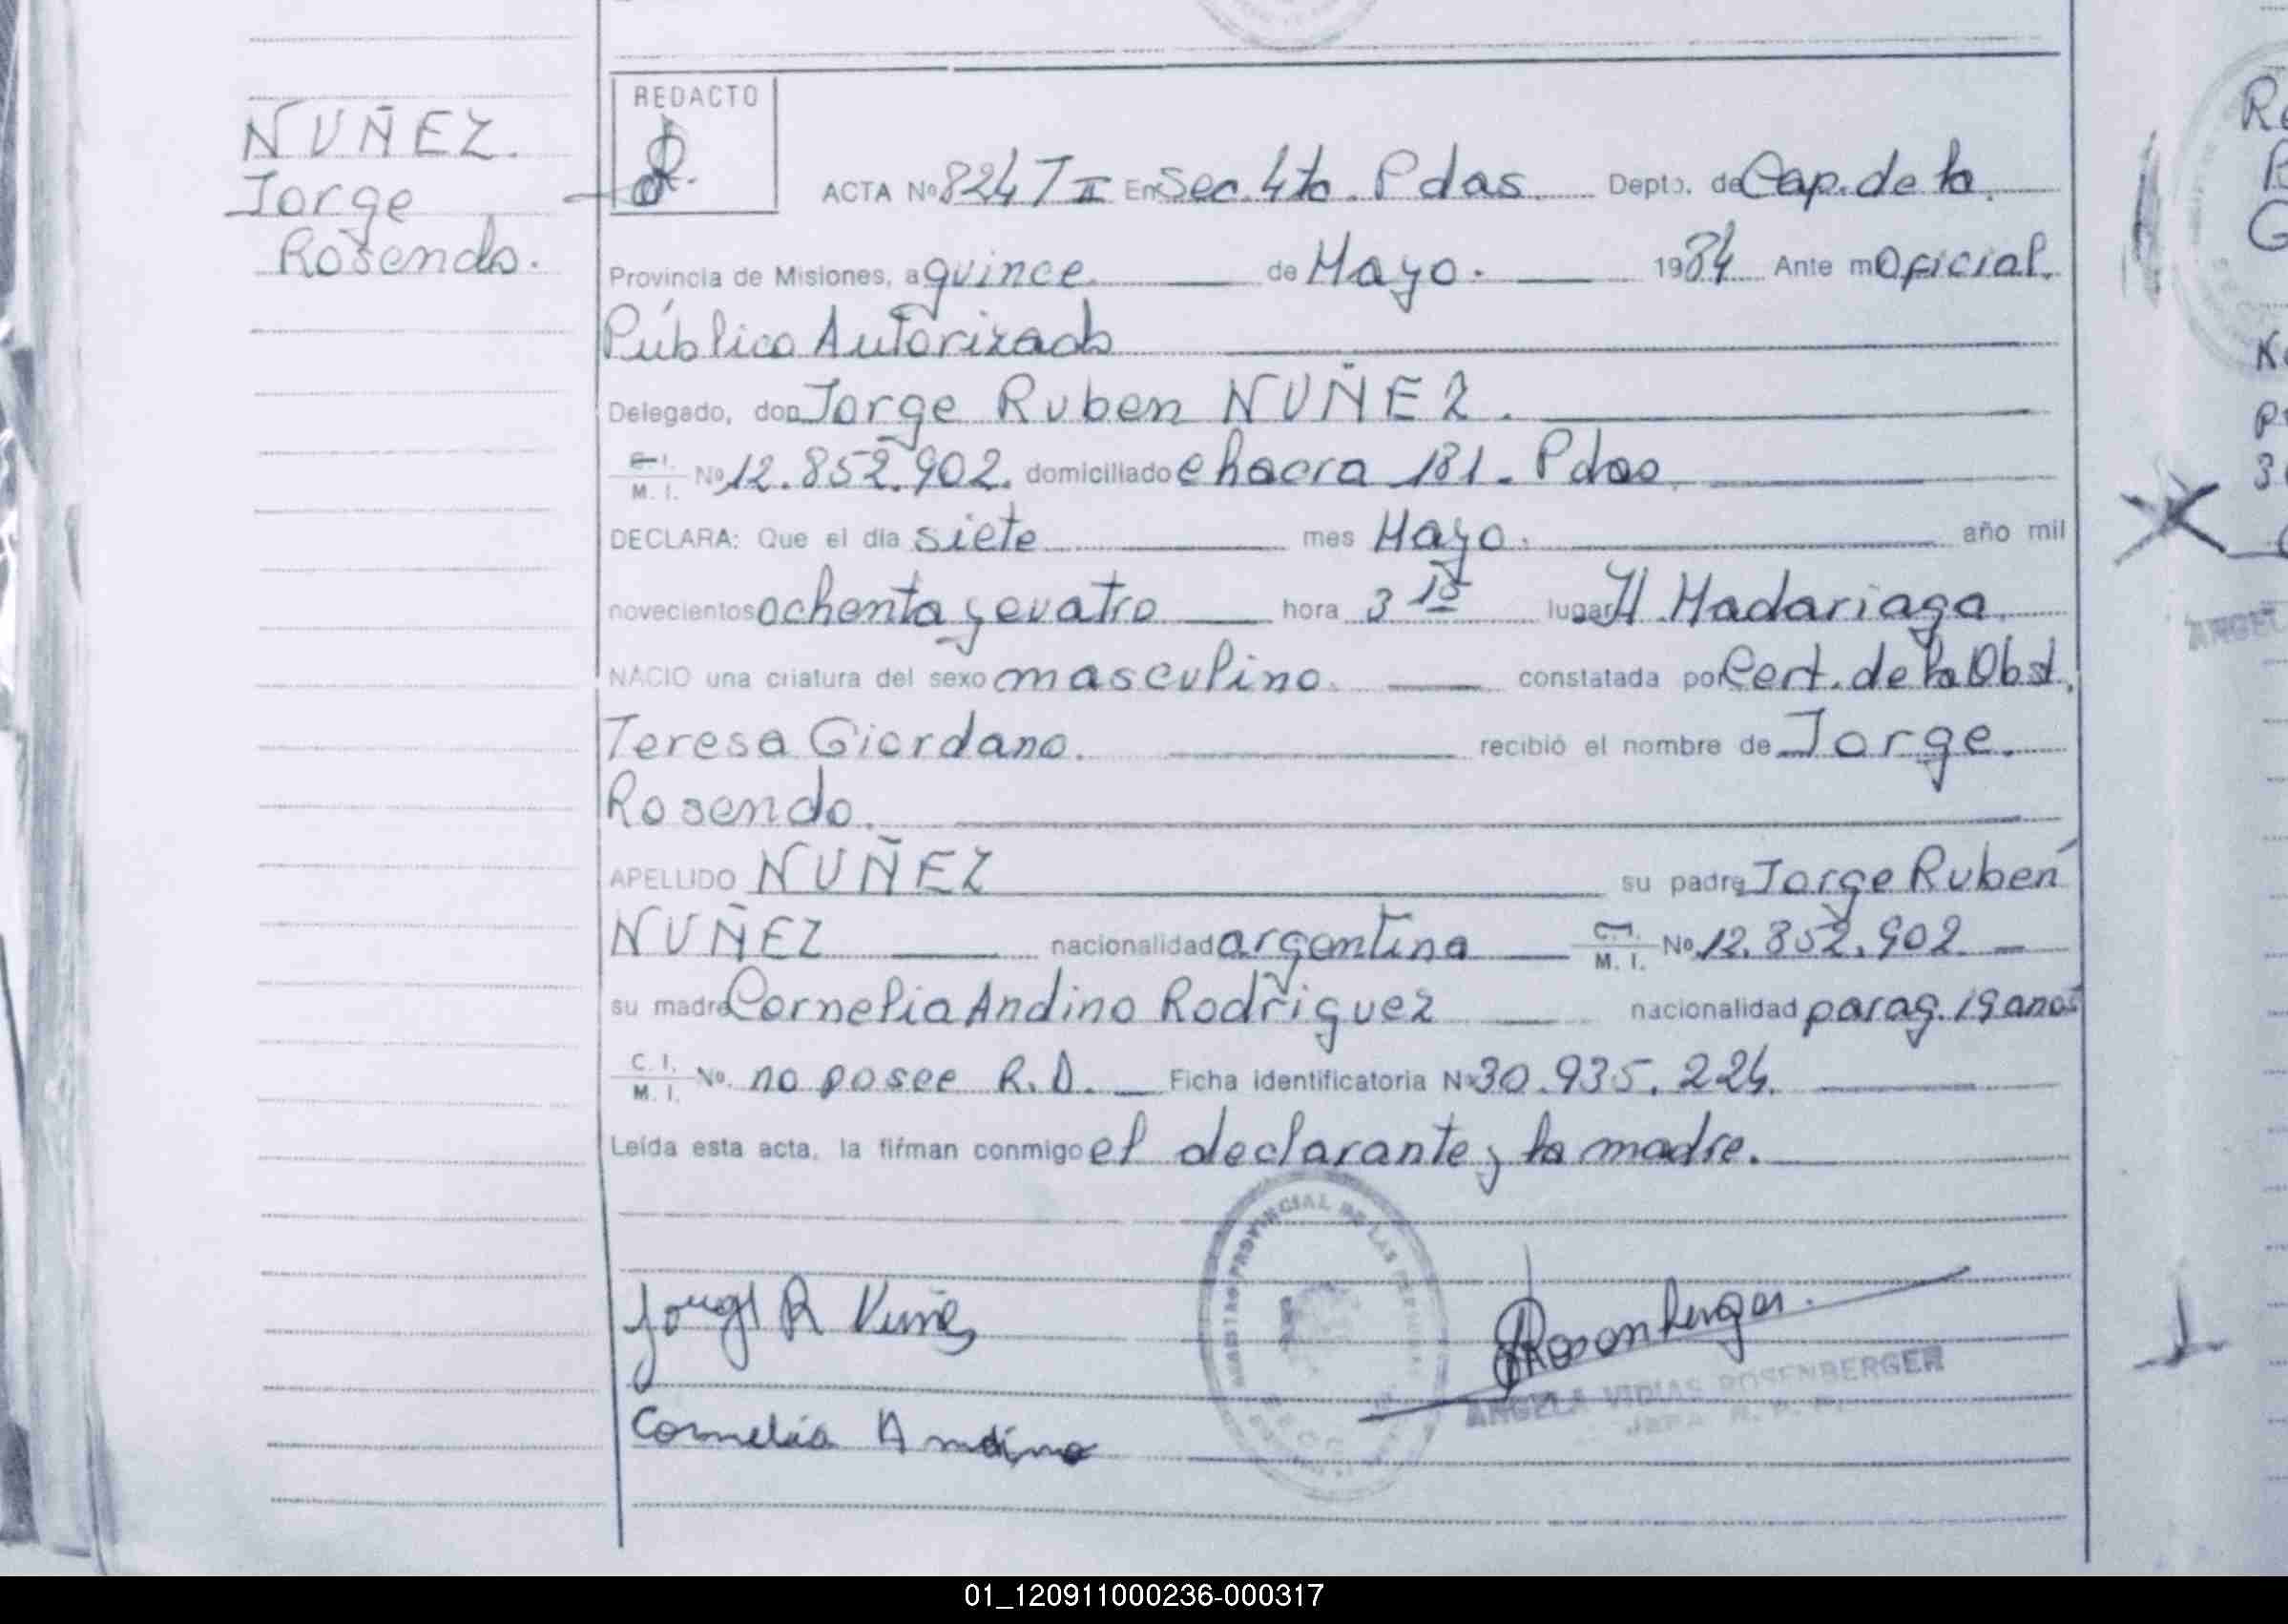 NUÑEZ.
Jorge
Rosendo.
REDACTO
ACTA Nº 824 T II En Sec. 4ta. Pdas. Depto. de Cap. de la
Provincia de Misiones, a quince de Mayo. 1984 Ante mí Oficial
Público Autorizado
Delegado, don Jorge Ruben NUÑEZ.
C. I.
M. I. Nº 12.852.902. domiciliado chacra 181. Pdas.
DECLARA: Que el día siete mes Mayo. año mil
novecientos ochenta y cuatro hora 3 15 lugar H. Madariaga.
NACIO una criatura del sexo masculino. constatada por Cert. de la Obst.
Teresa Giordano. recibió el nombre de Jorge
Rosendo.
APELLIDO NUÑEZ su padre Jorge Rubén
NUÑEZ nacionalidad argentina C. I. M. I. Nº 12.852.902
su madre Cornelia Andino Rodriguez nacionalidad parag. 19 anos
C. I.
M. I. Nº no posee R.D. Ficha identificatoria Nº 30.935.224.
Leída esta acta, la firman conmigo el declarante y la madre.
PROVINCIAL DE LAS
Jorge R Nuñez
Rosenberger.
ANGELA VIDIAS ROSENBERGER
Cornelia Andino
01_120911000236-000317